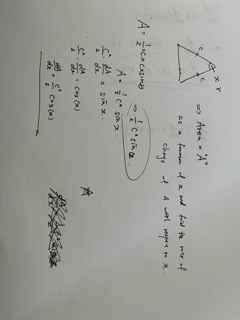 x r
c
c
⇒ Area = "A"
as a function of x and find the rate of
change of A with respect to x.
A = ½ × C × C × sinθ ⇒ ½ C² sin
A = ½ C² sin x.
C²/2 · dA/dx = sin x.
C²/2 · dA/dx = cos(x)
dA/dx = C²/2 cos(x)
A